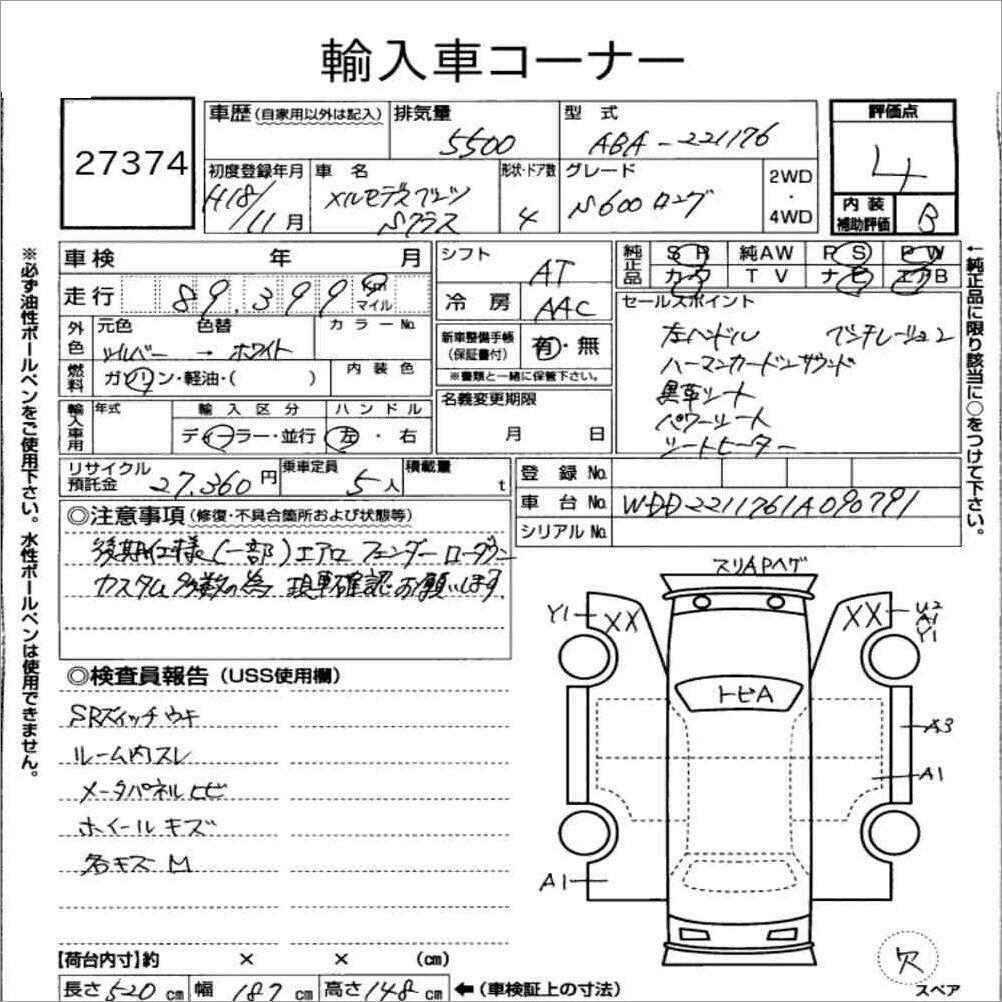 輸入車コーナー
27374
車歴(自家用以外は記入)
排気量
5500
型式
ABA-221176
評価点
4
初度登録年月
H18/11月
車名
メルセデスベンツ
Sクラス
形状・ドア数
4
グレード
S600ロング
2WD
・
4WD
内装
補助評価
B
車検 年 月
走行 89,399 Km マイル
シフト AT
冷房 AAC
純正品
SR 純AW PS PW
カワ TV ナビ エアB
外色 元色 色替 カラーNo.
シルバー → ホワイト
燃料 ガソリン・軽油・( )
内装色
新車整備手帳
(保証書付)
有・無
※書類と一緒に保管下さい。
セールスポイント
左ハンドル ベンチレーション
ハーマンカードンサウンド
黒革シート
パワーシート
シートヒーター
輸入車用 年式 輸入区分 ハンドル
ディーラー・並行 左・右
名義変更期限
月 日
リサイクル
預託金 27,360円
乗車定員 5人
積載量 t
登録No.
車台No. WDD2211761A090791
シリアルNo.
※必ず油性ボールペンをご使用下さい。水性ボールペンは使用できません。
←純正品に限り該当に○をつけて下さい。
◎注意事項(修復・不具合箇所および状態等)
後期仕様(一部)エアロ フェンダー ローダウン
カスタム多数の為 現車確認お願いします
◎検査員報告(USS使用欄)
SRスイッチウキ
ルーム内スレ
メータパネルヒビ
ホイールキズ
各キズM
スリAPハゲ
Y1 XX
XX U2
A1
Y1
トビA
A3
A1
A1
欠
スペア
【荷台内寸】約 × × (cm)
長さ520cm 幅187cm 高さ148cm ←(車検証上の寸法)